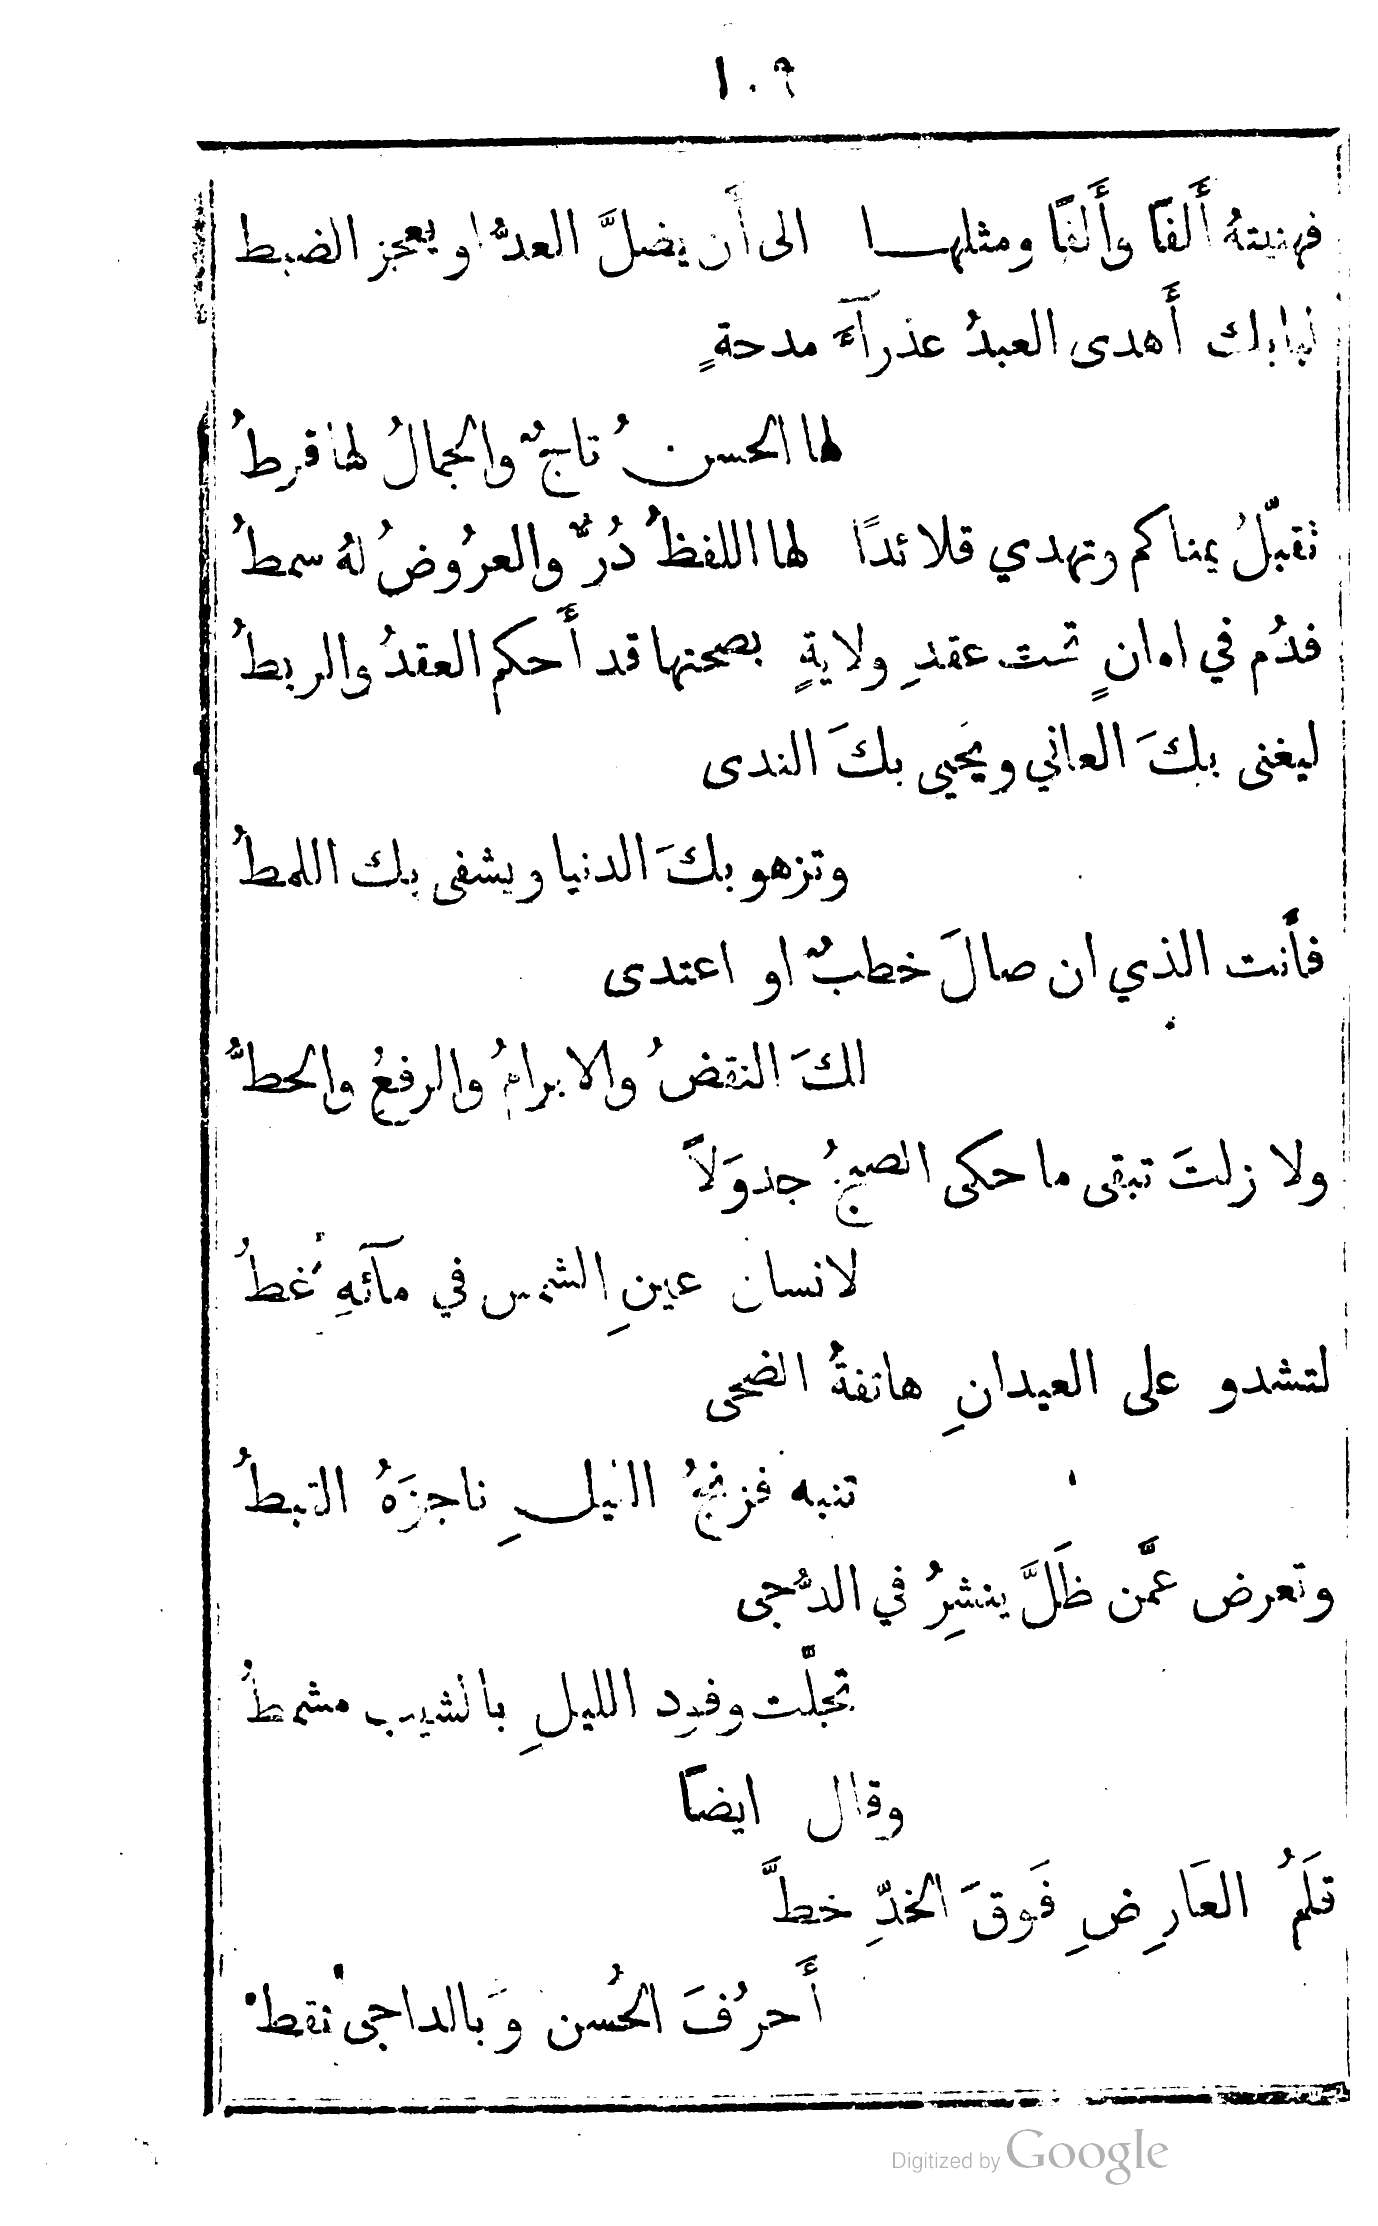 ١٠٩
فهنيتهُ أَلفًا وأَلفًا ومثلهـا الى أَن يضلَّ العدُّ او يعجز الضبط
لبابك أَهدى العبدُ عذرآءَ مدحةٍ
لها الحسنُ تاجٌ والجمالُ لها قرطُ
تقبّلُ يمناكم وتهدي قلائدًا لها اللفظُ دُرٌّ والعرُوضُ لهُ سمطُ
فدُم في امانٍ تحت عقدِ ولايةٍ بصحتها قد أَحكم العقدُ والربطُ
ليغنى بكَ العاني ويحيى بكَ الندى
وتزهو بكَ الدنيا ويشفى بك اللمطُ
فأَنت الذي ان صالَ خطبٌ او اعتدى
لكَ النقضُ والابرامُ والرفعُ والحطُّ
ولا زلتَ تبقى ما حكى الصبحُ جدوَلاً
لانسان عينِ الشمس في مآئهِ غطُ
لتشدو على العيدانِ هاتفةُ الضحى
تنبه فزنجُ النيلِ ناجزَهُ القبطُ
وتعرض عمَّن ظَلَّ ينشرُ في الدُّجى
تجلَّت وفود الليلِ بالشيب مشمطُ
وقال ايضاً
قلَمُ العَارِضِ فَوقَ الخدِّ خطَّ
أَحرُفَ الحُسن وَبالداجى نقط
Digitized by Google